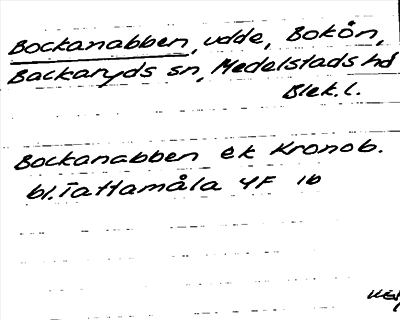 Bockanabben, udde, Bokön,
Backaryds sn, Medelstads hd
Blek.l.
Bockanabben ek Kronob.
bl. Tattamåla 4F 1b